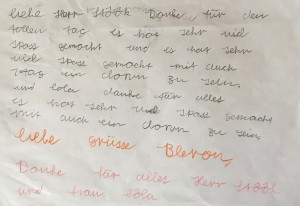 liebe Herr Stööl Danke, für den
tollen tag es hat sehr viel
spass gemacht und es hat sehr
viel spass gemacht mit euch
1 tag ein clown zu sein,
und lola danke für alles
es hat sehr viel spass gemacht
mit auch ein clown zu sein
liebe grüsse Bleron,
Danke für alles Herr Stööl
und frau lola